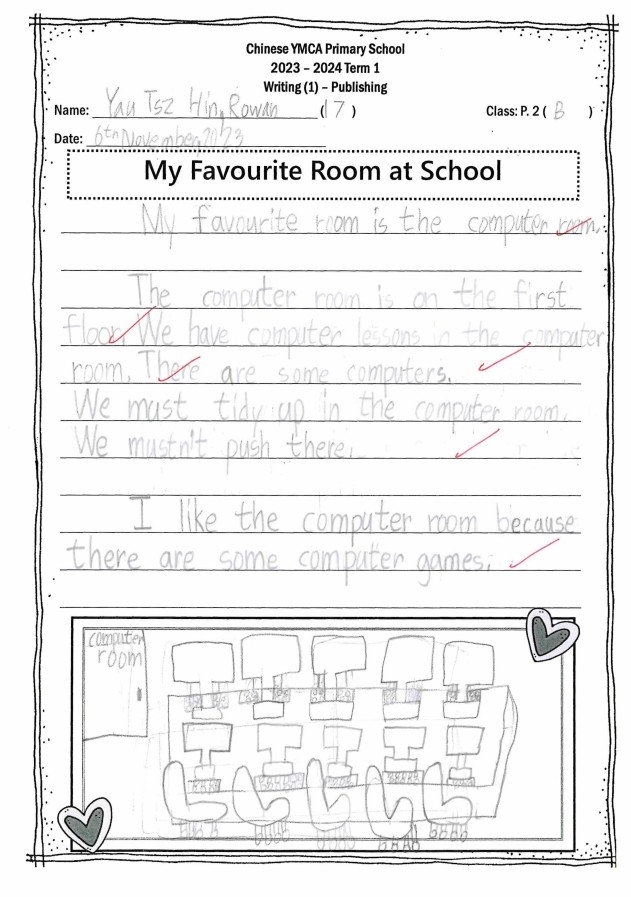 Chinese YMCA Primary School
2023 – 2024 Term 1
Writing (1) – Publishing
Name: Yau Tsz Hin, Rowan (17) Class: P. 2 ( B )
Date: 6th November, 2023
My Favourite Room at School
My favourite room is the computer room.
The computer room is on the first
floor. We have computer lessons in the computer
room. There are some computers.
We must tidy up in the computer room.
We mustn't push there.
I like the computer room because
there are some computer games.
computer
room